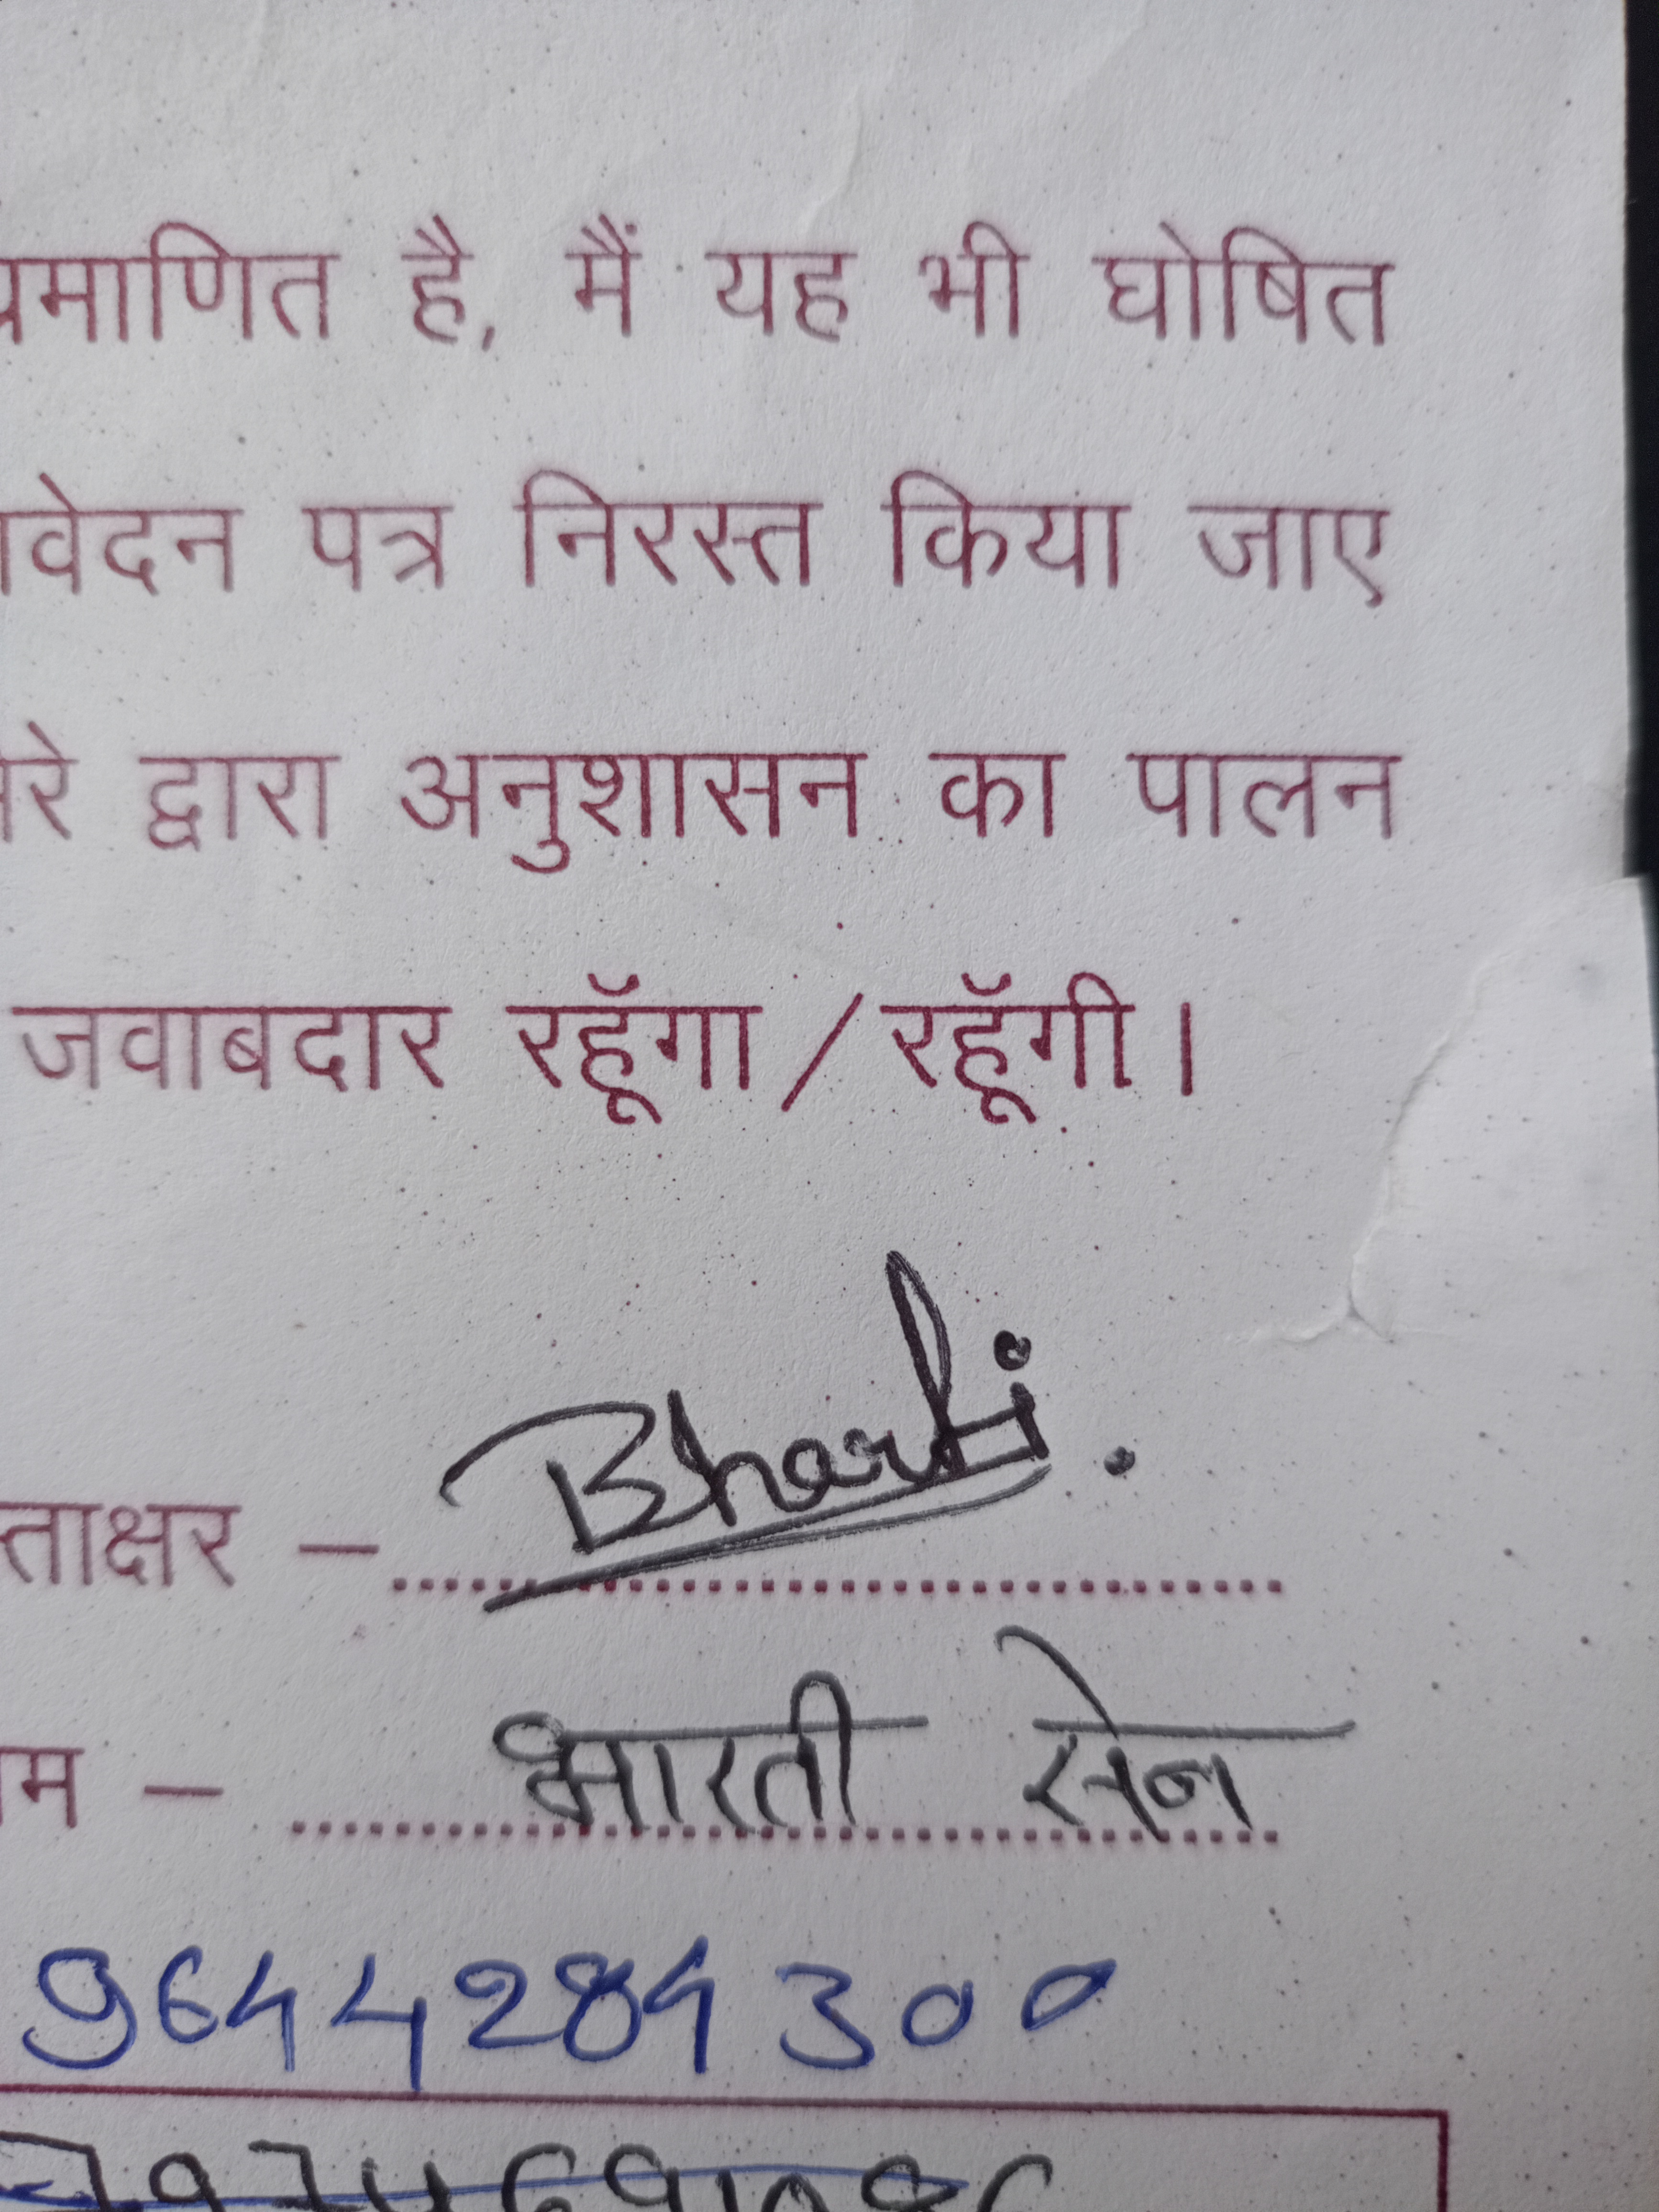 प्रमाणित है, मैं यह भी घोषित
वेदन पत्र निरस्त किया जाए
रे द्वारा अनुशासन का पालन
जवाबदार रहूॅंगा/रहूॅंगी।
ताक्षर – Bharti.
म – भारती सेन
9644284300